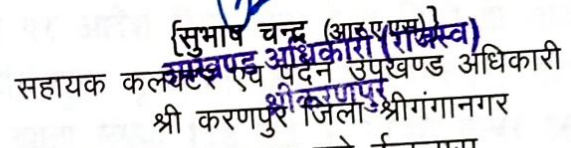 {सुभाष चन्द्र (आर.ए.एस)}
उपखण्ड अधिकारी (राजस्व)
सहायक कलक्टर एवं पदेन उपखण्ड अधिकारी
श्रीकरणपुर
श्री करणपुर जिला-श्रीगंगानगर